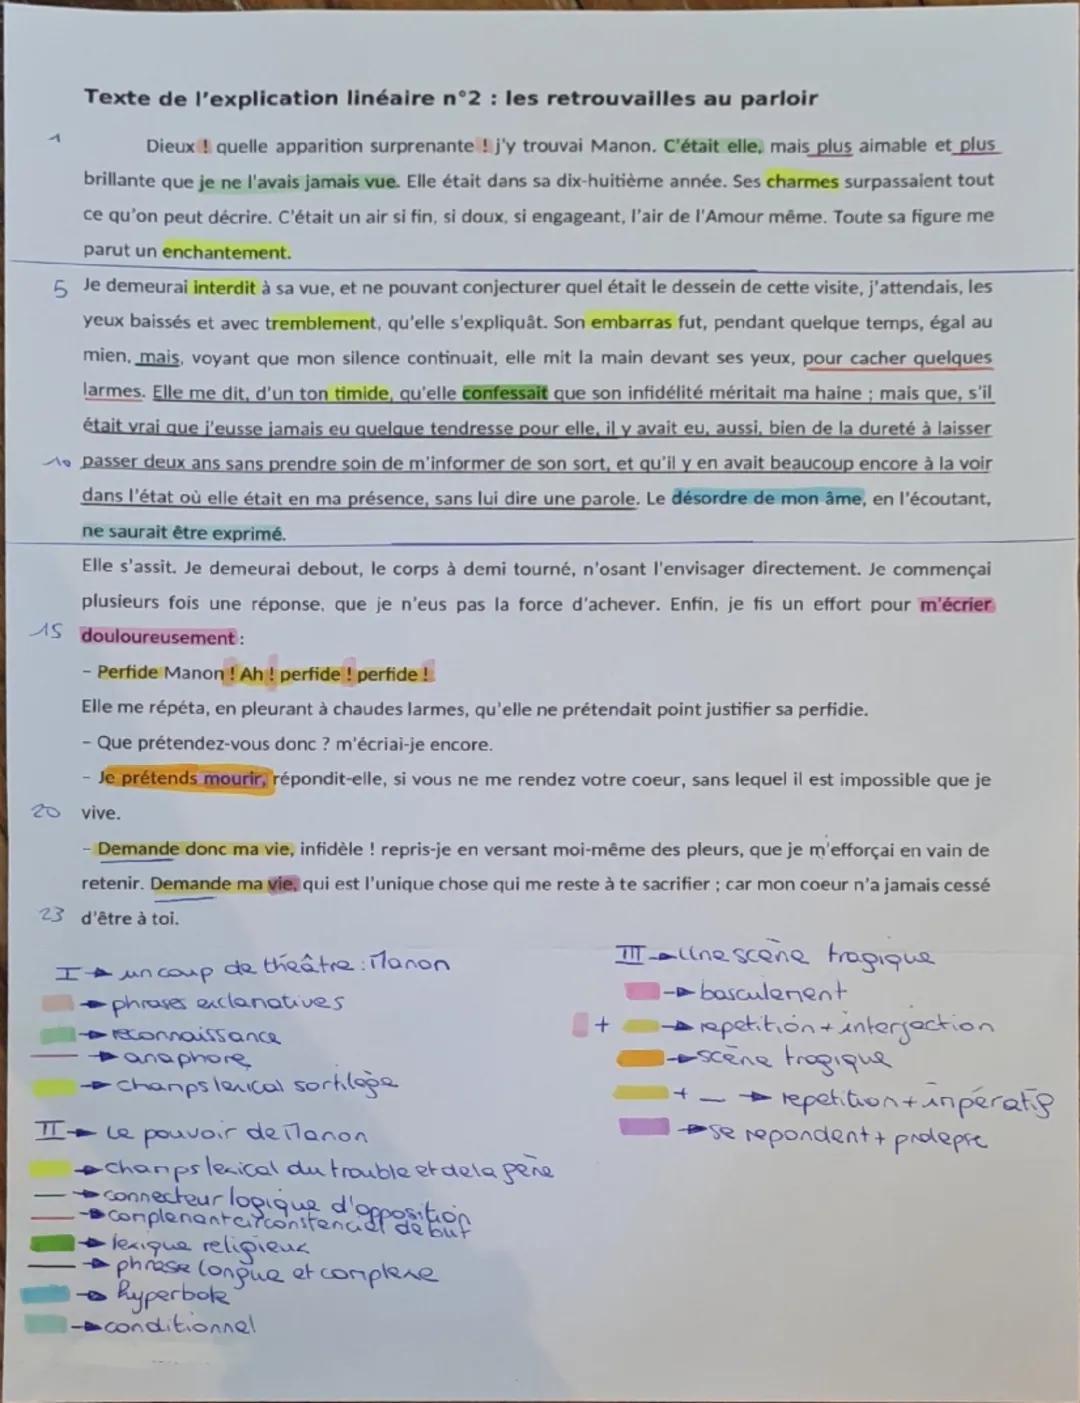 Texte de l'explication linéaire n°2 : les retrouvailles au parloir
1 Dieux ! quelle apparition surprenante ! j'y trouvai Manon. C'était elle, mais plus aimable et plus
brillante que je ne l'avais jamais vue. Elle était dans sa dix-huitième année. Ses charmes surpassaient tout
ce qu'on peut décrire. C'était un air si fin, si doux, si engageant, l'air de l'Amour même. Toute sa figure me
parut un enchantement.
5 Je demeurai interdit à sa vue, et ne pouvant conjecturer quel était le dessein de cette visite, j'attendais, les
yeux baissés et avec tremblement, qu'elle s'expliquât. Son embarras fut, pendant quelque temps, égal au
mien, mais, voyant que mon silence continuait, elle mit la main devant ses yeux, pour cacher quelques
larmes. Elle me dit, d'un ton timide, qu'elle confessait que son infidélité méritait ma haine ; mais que, s'il
était vrai que j'eusse jamais eu quelque tendresse pour elle, il y avait eu, aussi, bien de la dureté à laisser
10 passer deux ans sans prendre soin de m'informer de son sort, et qu'il y en avait beaucoup encore à la voir
dans l'état où elle était en ma présence, sans lui dire une parole. Le désordre de mon âme, en l'écoutant,
ne saurait être exprimé.
Elle s'assit. Je demeurai debout, le corps à demi tourné, n'osant l'envisager directement. Je commençai
plusieurs fois une réponse, que je n'eus pas la force d'achever. Enfin, je fis un effort pour m'écrier
15 douloureusement :
- Perfide Manon ! Ah ! perfide ! perfide !
Elle me répéta, en pleurant à chaudes larmes, qu'elle ne prétendait point justifier sa perfidie.
- Que prétendez-vous donc ? m'écriai-je encore.
- Je prétends mourir, répondit-elle, si vous ne me rendez votre coeur, sans lequel il est impossible que je
20 vive.
- Demande donc ma vie, infidèle ! repris-je en versant moi-même des pleurs, que je m'efforçai en vain de
retenir. Demande ma vie, qui est l'unique chose qui me reste à te sacrifier ; car mon coeur n'a jamais cessé
23 d'être à toi.
I → un coup de théâtre : Manon
→ phrases exclamatives
→ reconnaissance
→ anaphore
→ champs lexical sortilège
II → Le pouvoir de Manon
→ champs lexical du trouble et de la gêne
→ connecteur logique d'opposition
→ complément circonstenciel de but
→ lexique religieux
→ phrase longue et complexe
→ hyperbole
→ conditionnel
III → Une scène tragique
→ basculement
+ → repetition + interjection
→ scène tragique
+ _ → repetition + impératif
→ se repondent + prolepse